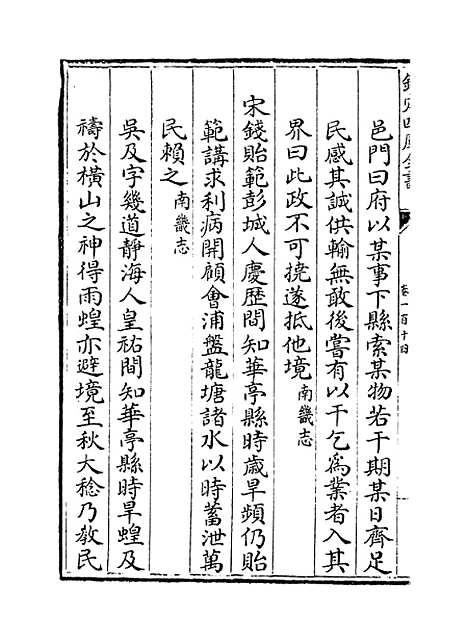 欽定四庫全書
卷一百十四
邑門曰府以某事下縣索某物若干期某日齊足
民感其誠供輸無敢後嘗有以干乞為業者入其
界曰此政不可撓遂抵他境南畿志
宋錢貽範彭城人慶歴間知華亭縣時歲旱頻仍貽
範講求利病開顧會浦盤龍塘諸水以時蓄泄萬
民賴之南畿志
吳及字幾道靜海人皇祐間知華亭縣時旱蝗及
禱於橫山之神得雨蝗亦避境至秋大稔乃教民